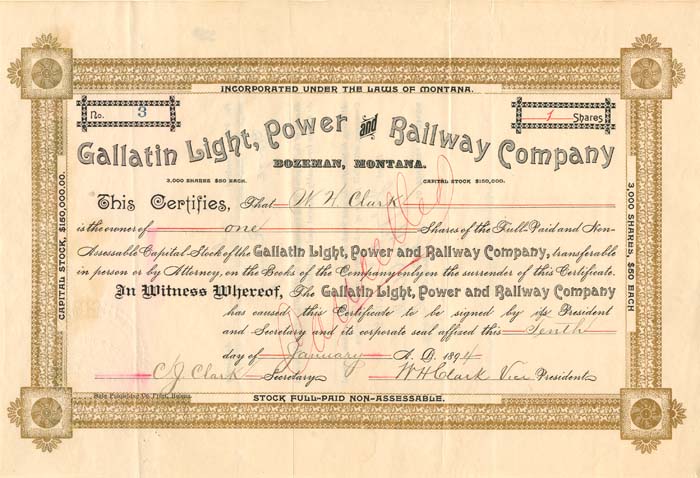 INCORPORATED UNDER THE LAWS OF MONTANA.
No. 3
1 Shares
Gallatin Light, Power and Railway Company
BOZEMAN, MONTANA.
3,000 SHARES $50 EACH.
CAPITAL STOCK $150,000.
This Certifies, That W. H. Clark
is the owner of one Shares of the Full Paid and Non-
Assessable Capital Stock of the Gallatin Light, Power and Railway Company, transferable
in person or by Attorney, on the Books of the Company only on the surrender of this Certificate.
In Witness Whereof, The Gallatin Light, Power and Railway Company
has caused this Certificate to be signed by its President
and Secretary and its corporate seal affixed this Tenth
day of January A. D. 1894
C J Clark Secretary
W H Clark Vice President
Cancelled
STOCK FULL-PAID NON-ASSESSABLE.
CAPITAL STOCK, $150,000.00.
3,000 SHARES, $50 EACH